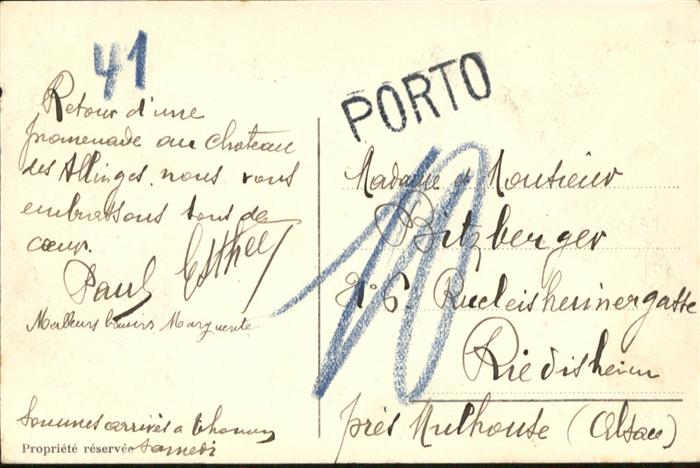 41
PORTO
Retour d'une
promenade au chateau
des Allinges. nous vous
embrassons tous de
cœur.
Paul Esther
Meilleurs baisers Marguerite
Sommes arrivés a Thonon
Samedi
Propriété réservée
Madame & Monsieur
Bitzberger
N° 6. Rudeisheimergasse
Riedisheim
près Mulhouse (Alsace)
10